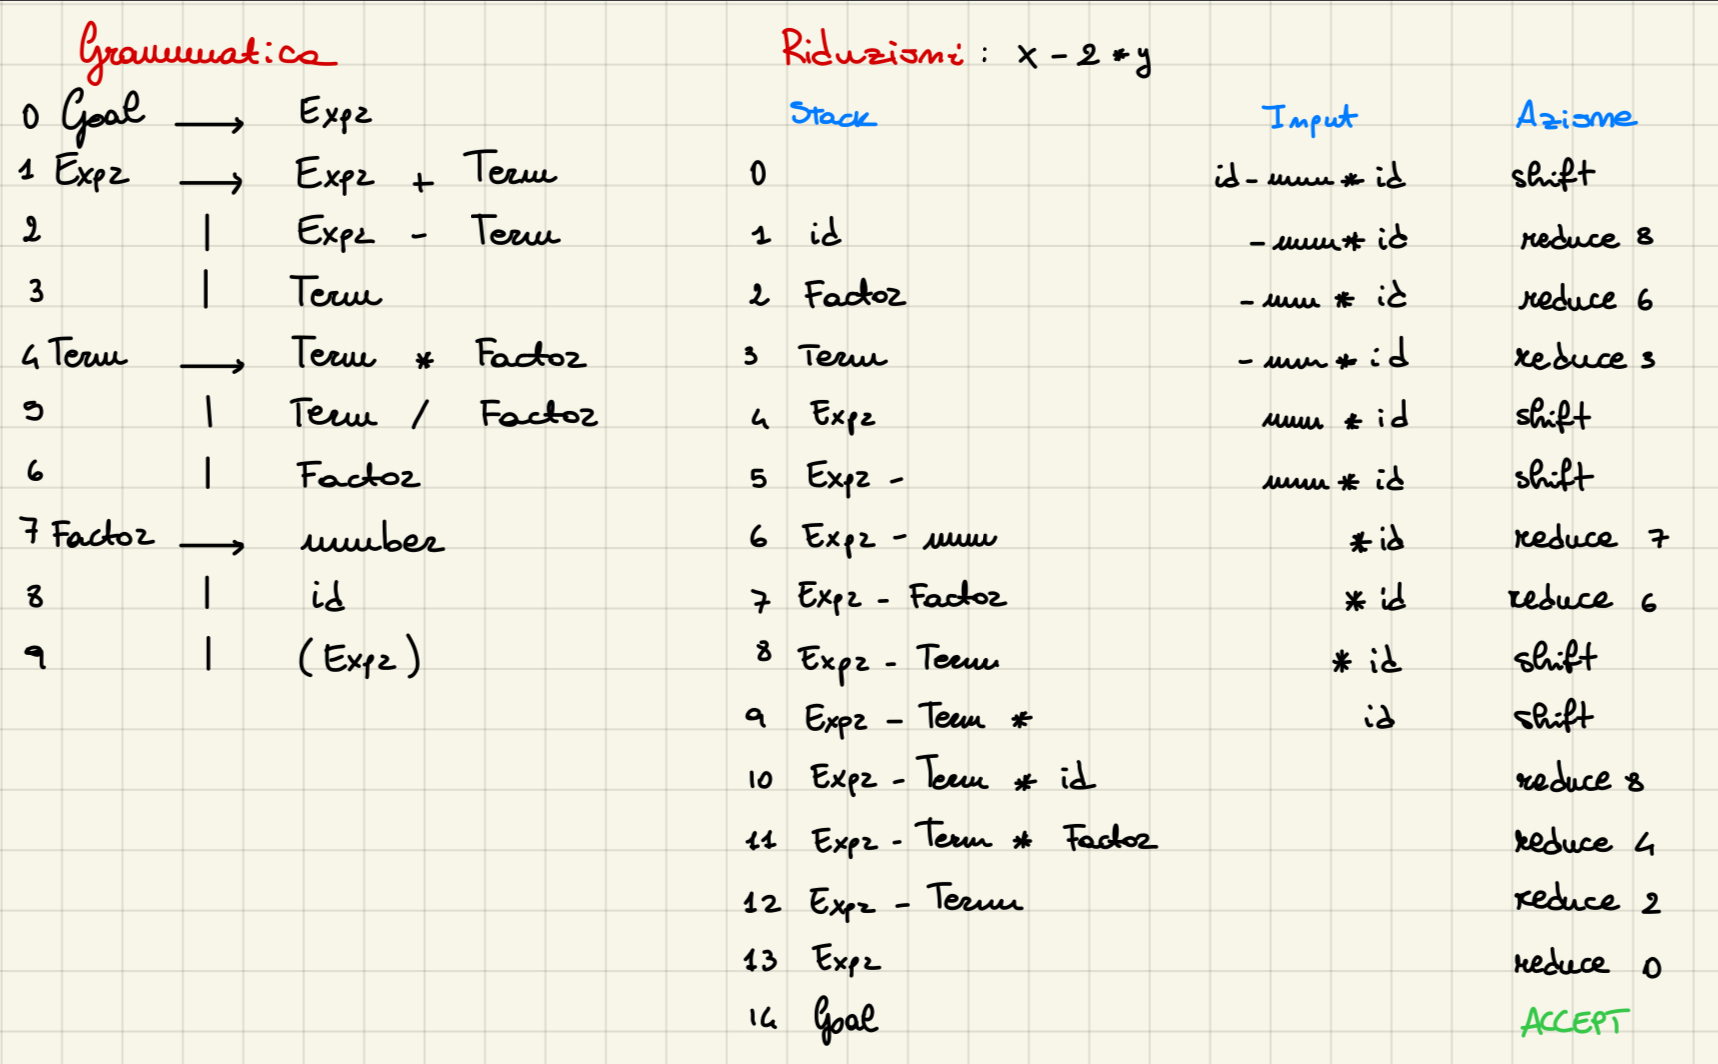 Grammatica
0 Goal → Expr
1 Expr → Expr + Term
2 | Expr - Term
3 | Term
4 Term → Term * Factor
5 | Term / Factor
6 | Factor
7 Factor → number
8 | id
9 | (Expr)
Riduzioni: x - 2 * y
Stack Input Azione
0 id - num * id shift
1 id - num * id reduce 8
2 Factor - num * id reduce 6
3 Term - num * id reduce 3
4 Expr num * id shift
5 Expr - num * id shift
6 Expr - num * id reduce 7
7 Expr - Factor * id reduce 6
8 Expr - Term * id shift
9 Expr - Term * id shift
10 Expr - Term * id reduce 8
11 Expr - Term * Factor reduce 4
12 Expr - Term reduce 2
13 Expr reduce 0
14 Goal ACCEPT